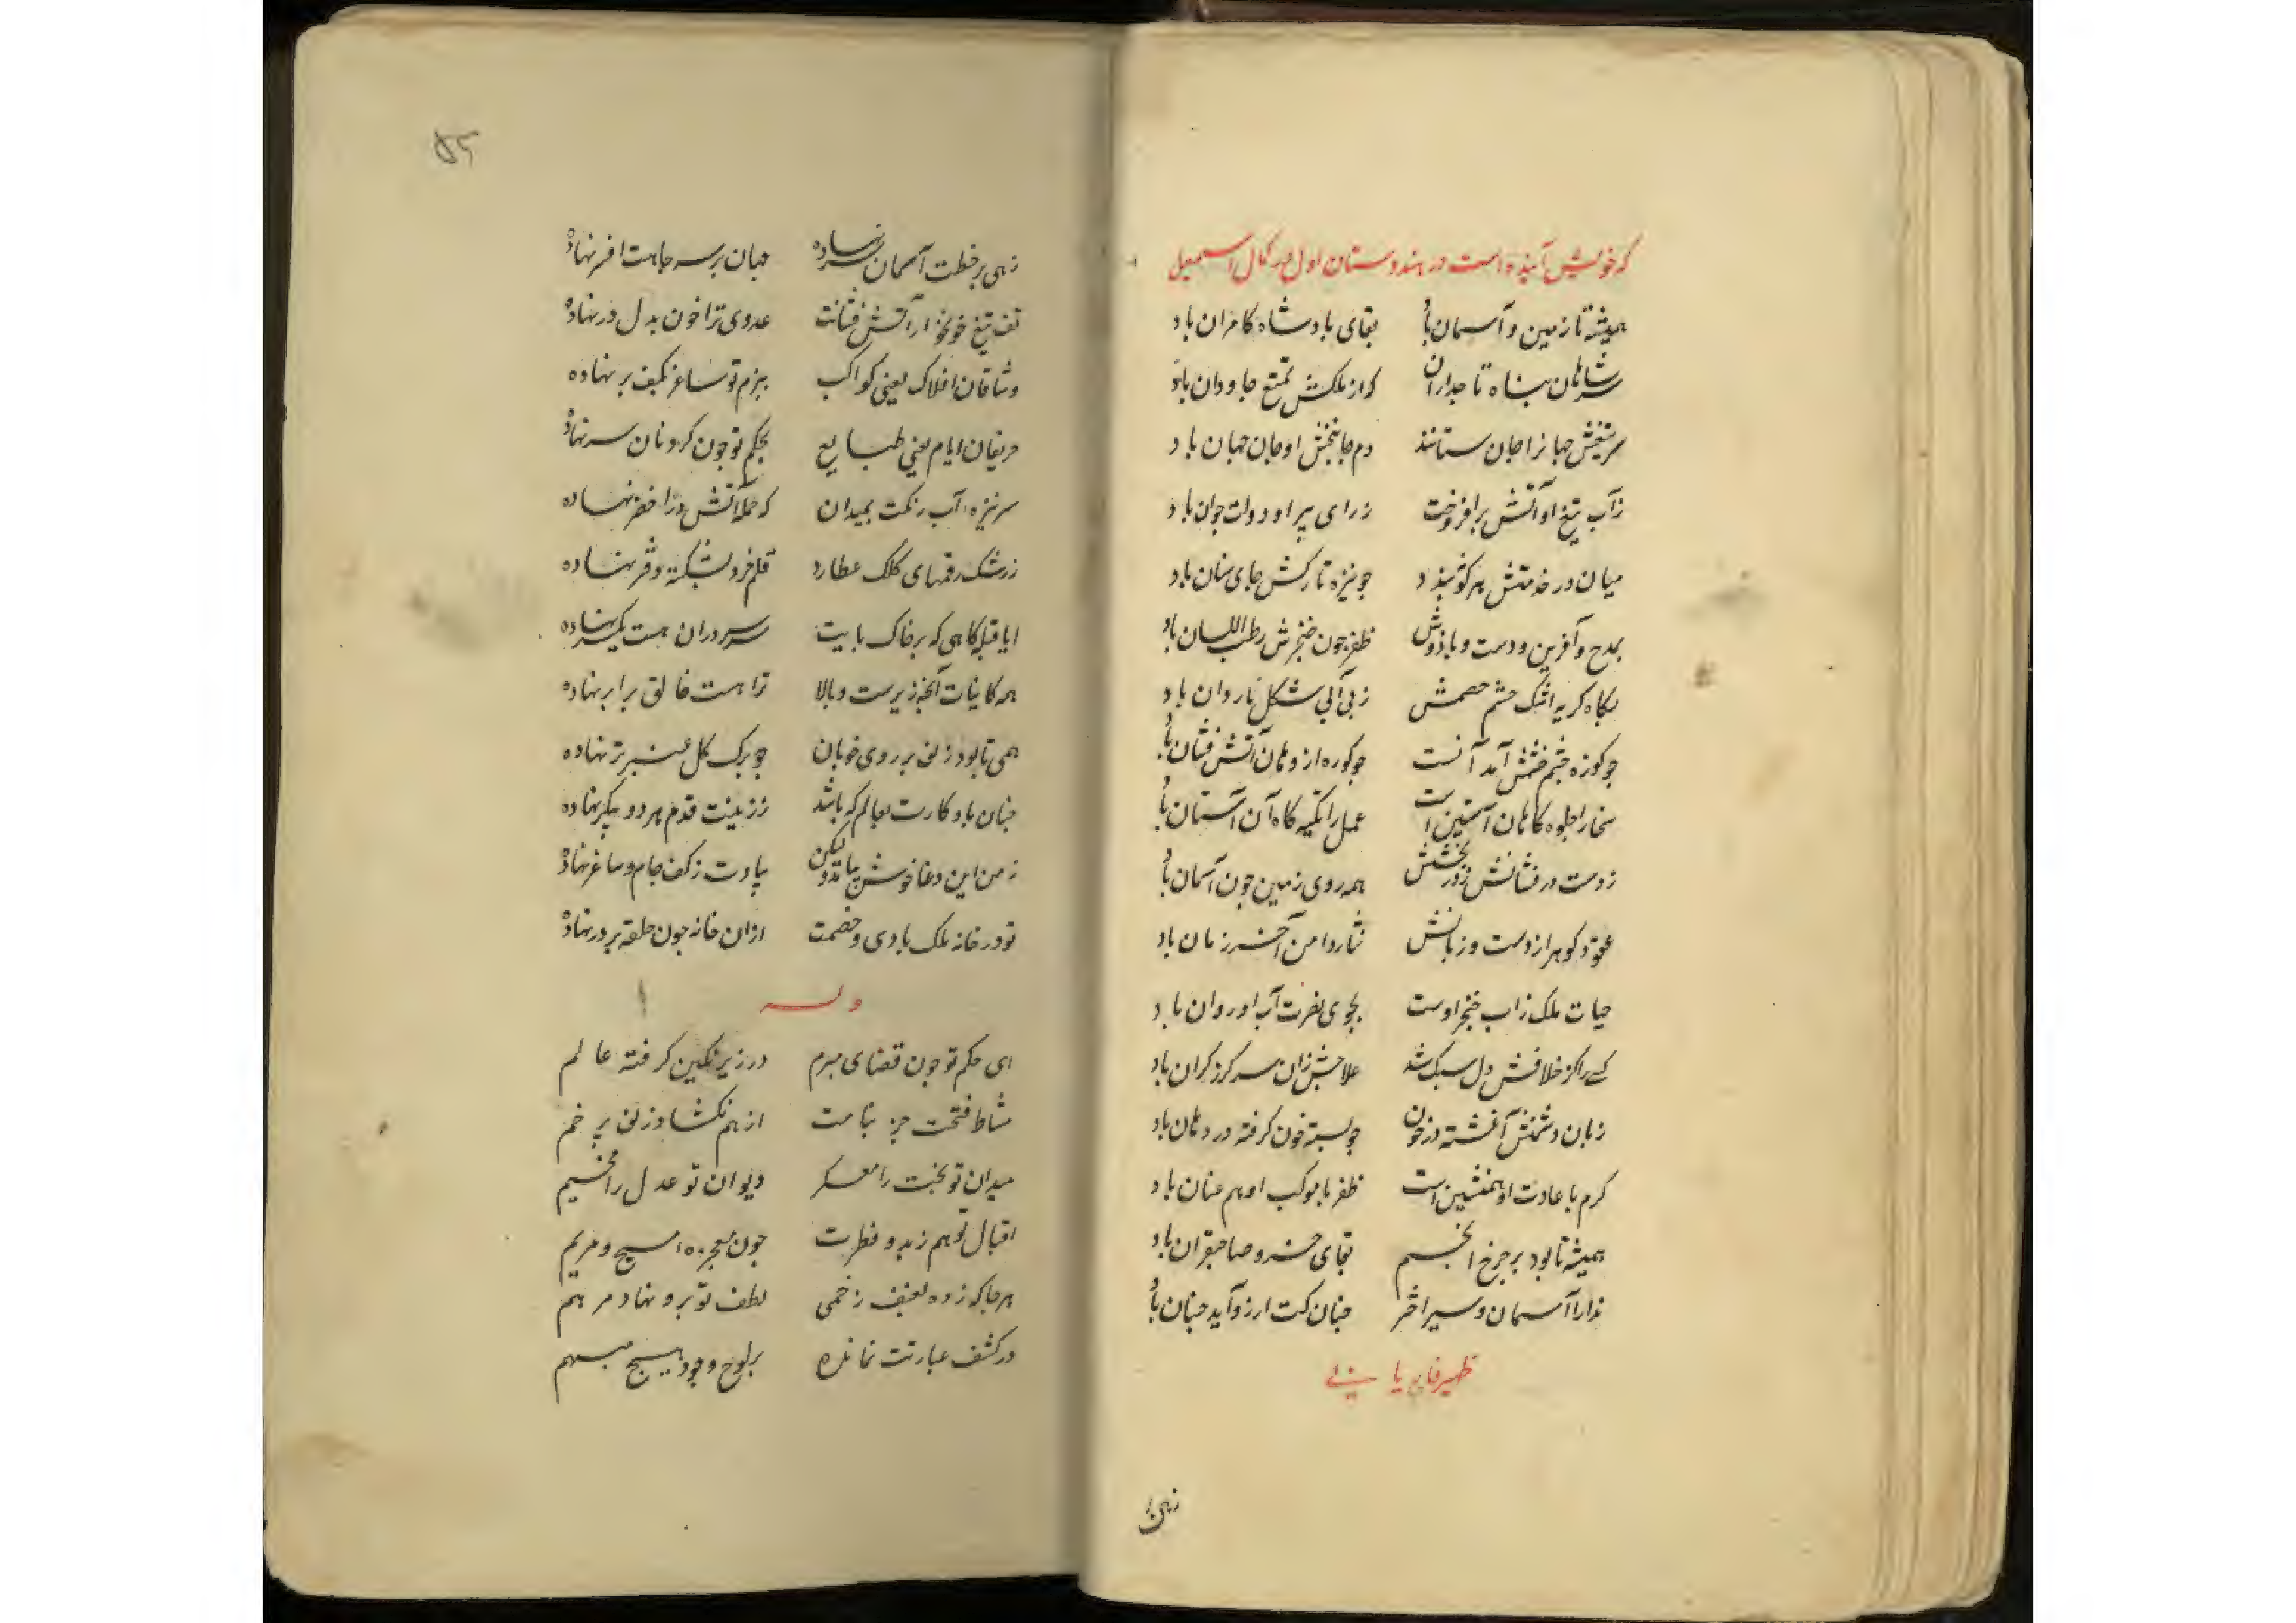 که خویش آینده است در هندوستان اول در کمال اسمعیل
همیشه تا زمین و آسمان باد بقای بادشاه کامران باد
سر شاهان پناه تاجداران که از ملکش تمتع جاودان باد
سر تیغش جهانرا جان ستانند دم جانبخش او جان جهان باد
ز آب تیغ او آتش برافروخت ز رای پیر او دولت جوان باد
میان در خدمتش هر کو نبندد چو نیزه تارکش جای سنان باد
بمدح و آفرین و دست و بازوش ظفر چون خنجرش رطب اللسان باد
بگاه گریه اشک چشم خصمش ز بی آبی بشکل ناردان باد
چو کوزه خشم آمد آنست چو کوره از دهان آتش فشان باد
سخا را جلوه گاه آن آستین است عمل را تکیه گاه آن آستان باد
ز دست در فشانش زور بخشش همه روی زمین چون آسمان باد
عقود گوهر از دست و زبانش نثار دامن آخر زمان باد
حیات ملک ز آب خنجر اوست بجوی نصرت آب او روان باد
کسی را کز خلافش دل سبک شد علاجش زان سر گرز گران باد
زبان دشمنش آغشته در خون چو پسته خون گرفته در دهان باد
کرم با عادت او همنشین است ظفر با موکب او هم عنان باد
همیشه تا بود بر چرخ انجم بقای خسرو صاحبقران باد
مدارا آسمان و سیر اختر چنان کت آرزو آید چنان باد
ظهیر فاریابی
زهی بر
۵۲
زهی بر خطت آسمان سر نهاده جهان بر سر جاهت افسر نهاده
تف تیغ خونخوار آتش فشانت عدوی ترا خون بدل در نهاده
وشاقان افلاک یعنی کواکب ببزم تو ساغر بکف بر نهاده
حریفان ایام یعنی طبایع بحکم تو چون گردنان سر نهاده
سر نیزه آب رنگت بمیدان که حمله آتش در اخضر نهاده
ز رشک رقمهای کلک عطارد قلم خرد بشکسته دفتر نهاده
ایا قبله گاهی که بر خاک پایت سر سروران هست یکسر نهاده
همه کاینات آنچه زیرست و بالا ترا هست خالق برابر نهاده
همی تا بود زلف بر روی خوبان چو برگ گل عنبر تر نهاده
چنان باد کارت بعالم که باشد ز زینت قدم هر دو پیکر نهاده
ز من این دعا خوش نیامد ولیکن بیادت ز کف جام و ساغر نهاده
تو در خانه ملک بادی و خصمت از آن خانه چون حلقه بر در نهاده
وله
ای حکم تو چون قضای مبرم در زیر نگین گرفته عالم
مشاط فتحت جز بنامت از هم نگشاد زلف پر خم
میدان تو بخت را معسکر دیوان تو عدل را مخیم
اقبال تو هم ز بدو فطرت چون معجزه مسیح و مریم
هر جا که زده بعنف زخمی لطف تو برو نهاد مرهم
در کشف عبارتت نمانده بر لوح وجود هیچ مبهم